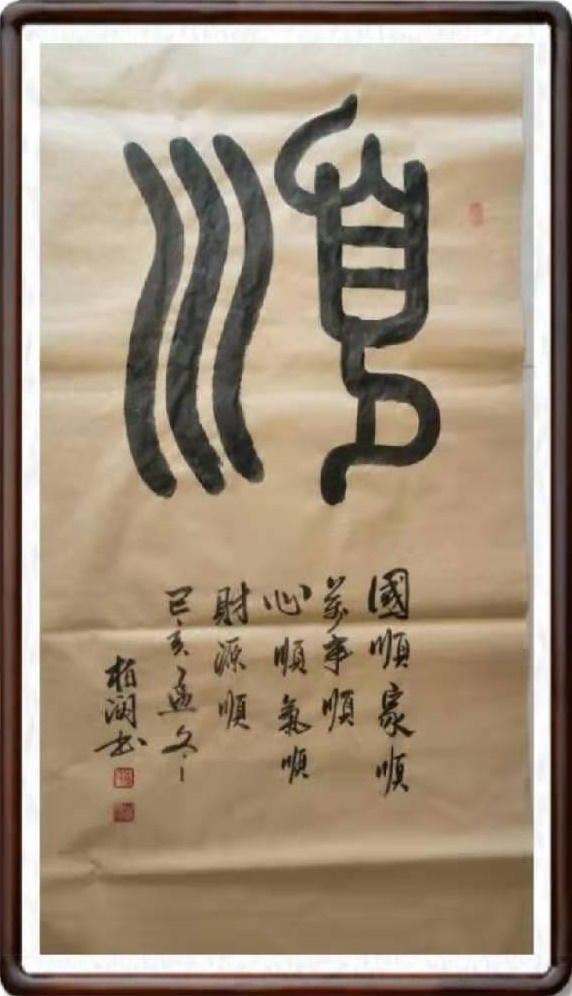 順
國順家順
萬事順
心順氣順
財源順
己亥孟冬
柏澗书